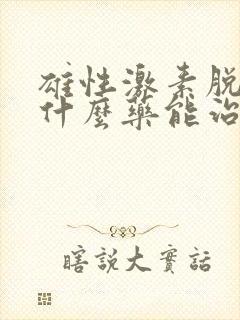 雄性激素脱
什麼藥能治
瞎說大實話